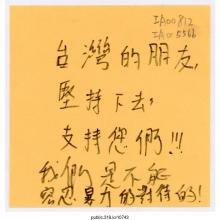 IA00812
台灣的朋友,
堅持下去,
支持您們!!!
我們是不能
容忍暴力的對待的!
public.318.io/10743